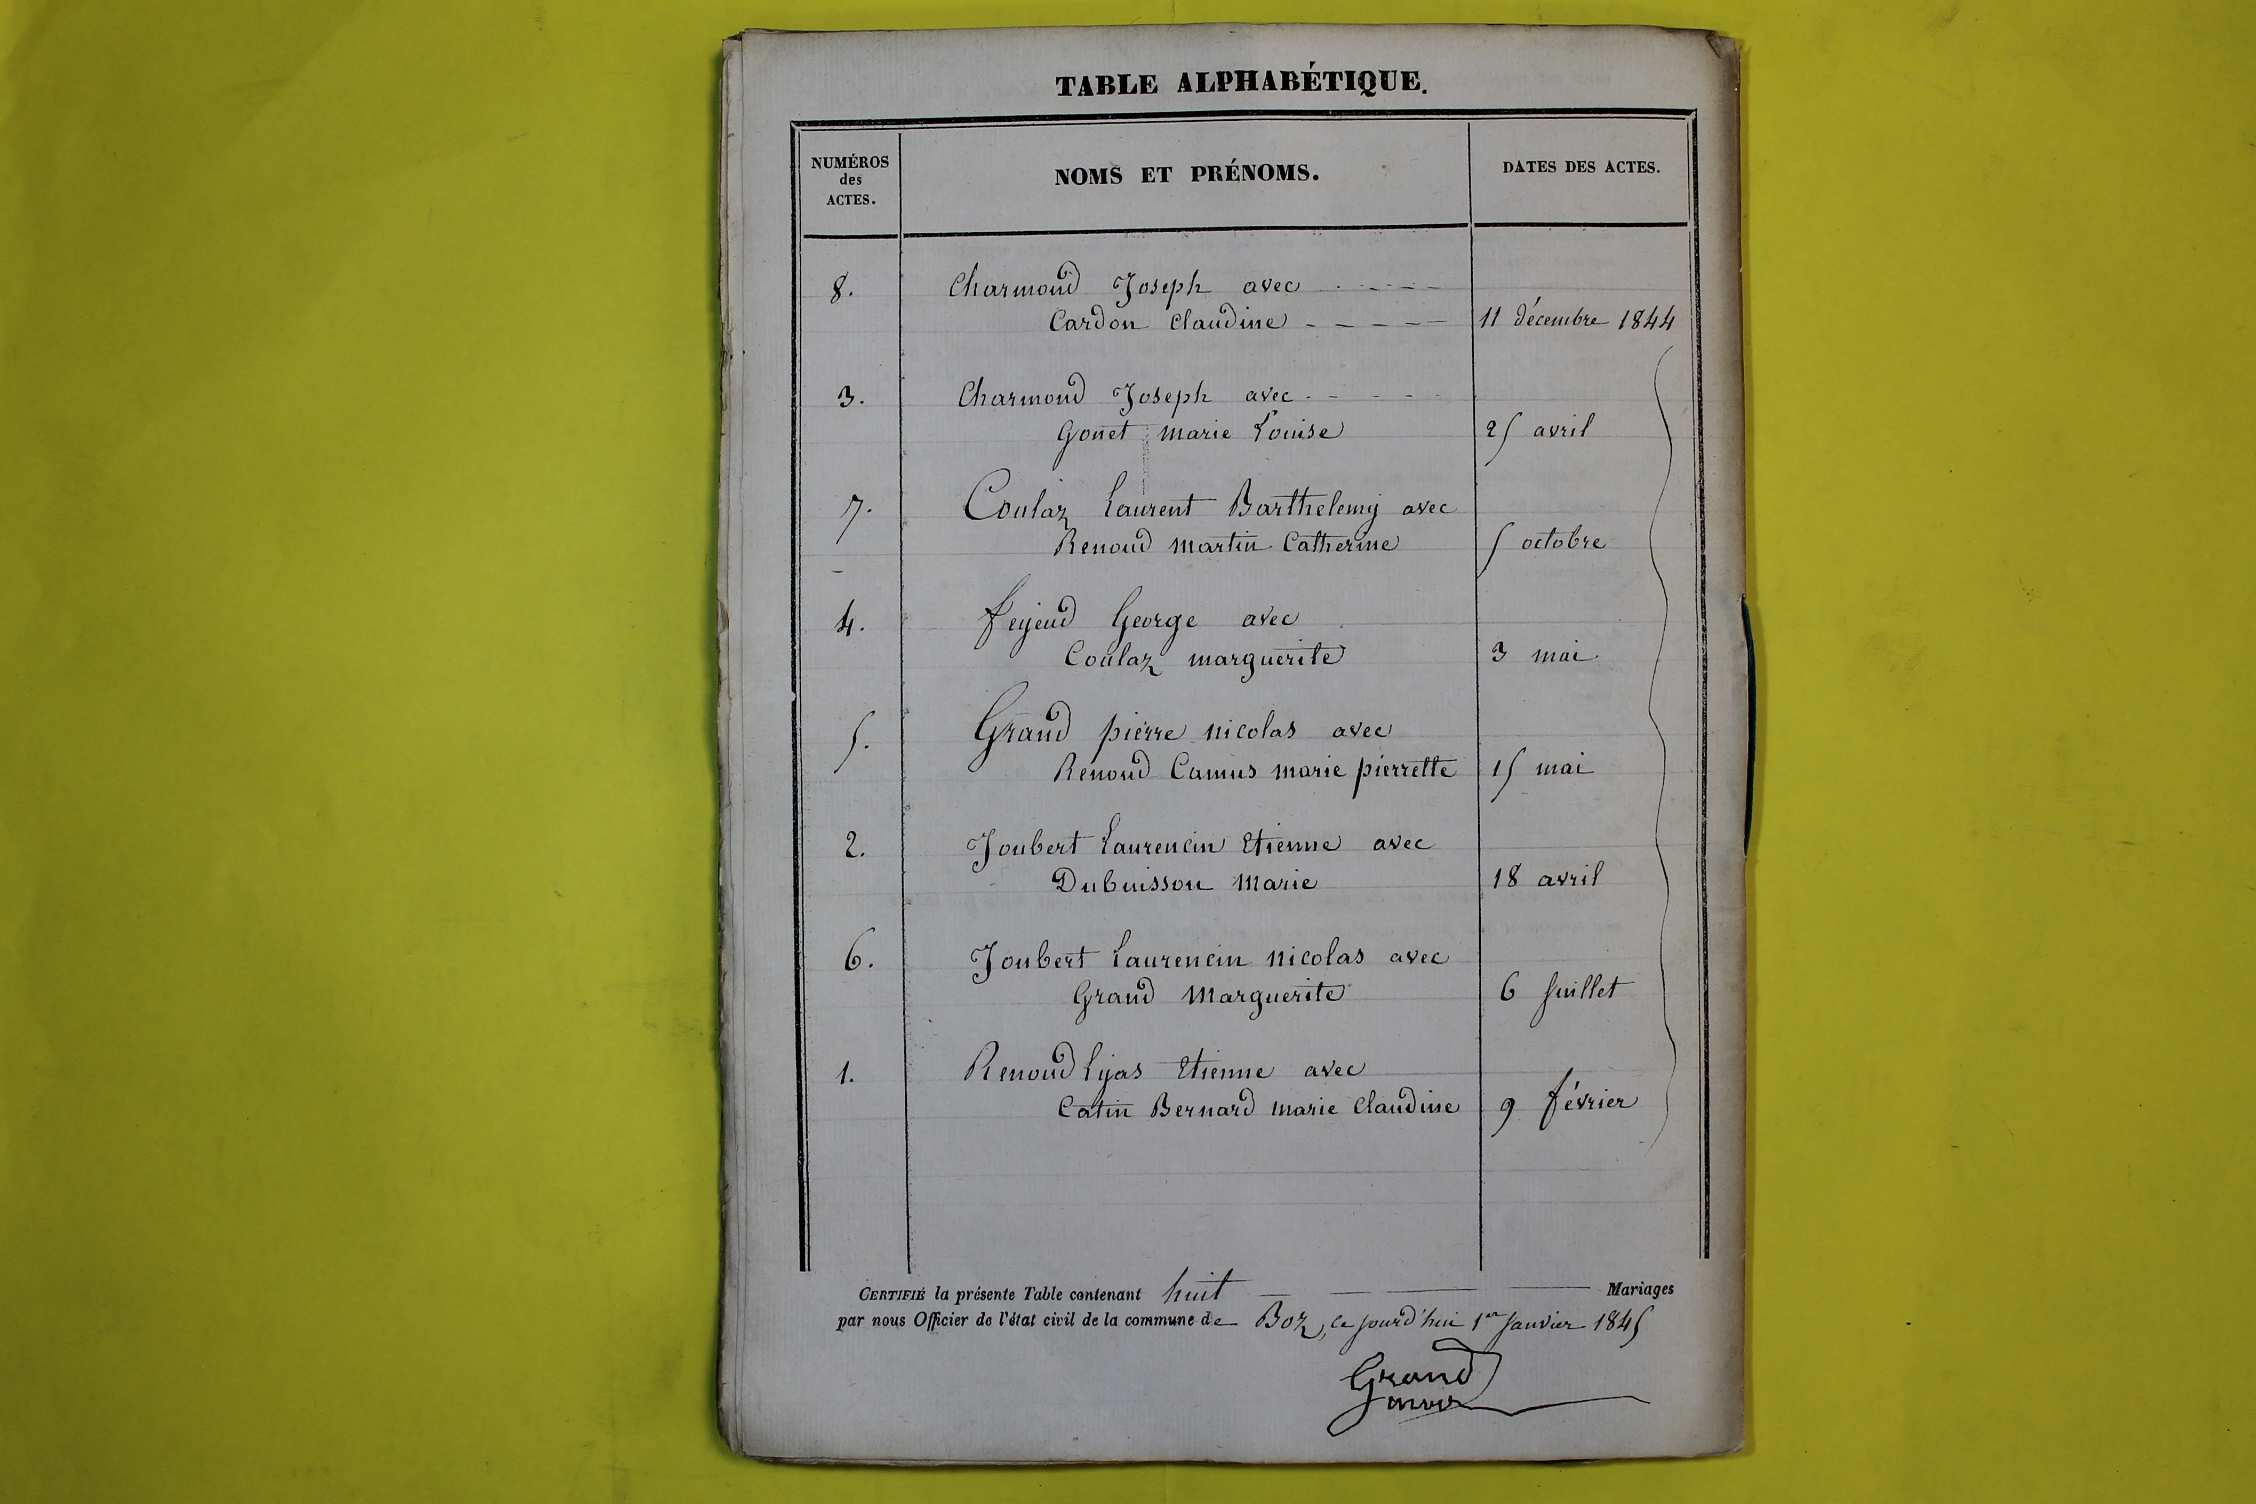 TABLE ALPHABÉTIQUE.
NUMÉROS
des
ACTES.
NOMS ET PRÉNOMS.
DATES DES ACTES.
8. Charmond Joseph avec
Cardon Claudine 11 décembre 1844
3. Charmond Joseph avec
Gonet marie Louise 25 avril
7. Coulaz Laurent Barthelemy avec
Renoud martin Catherine 5 octobre
4. feyeud George avec
Coulaz marguerite 3 mai
5. Grand pierre nicolas avec
Renoud Camus marie pierrette 15 mai
2. Joubert Laurencin Etienne avec
Dubuisson Marie 18 avril
6. Joubert Laurencin nicolas avec
Grand Marguerite 6 Juillet
1. Renoud Lyas Etienne avec
Catin Bernard marie Claudine 9 février
CERTIFIÉ la présente Table contenant huit Mariages
par nous Officier de l'état civil de la commune de Boz, ce jourd'hui 1er Janvier 1845
Grand